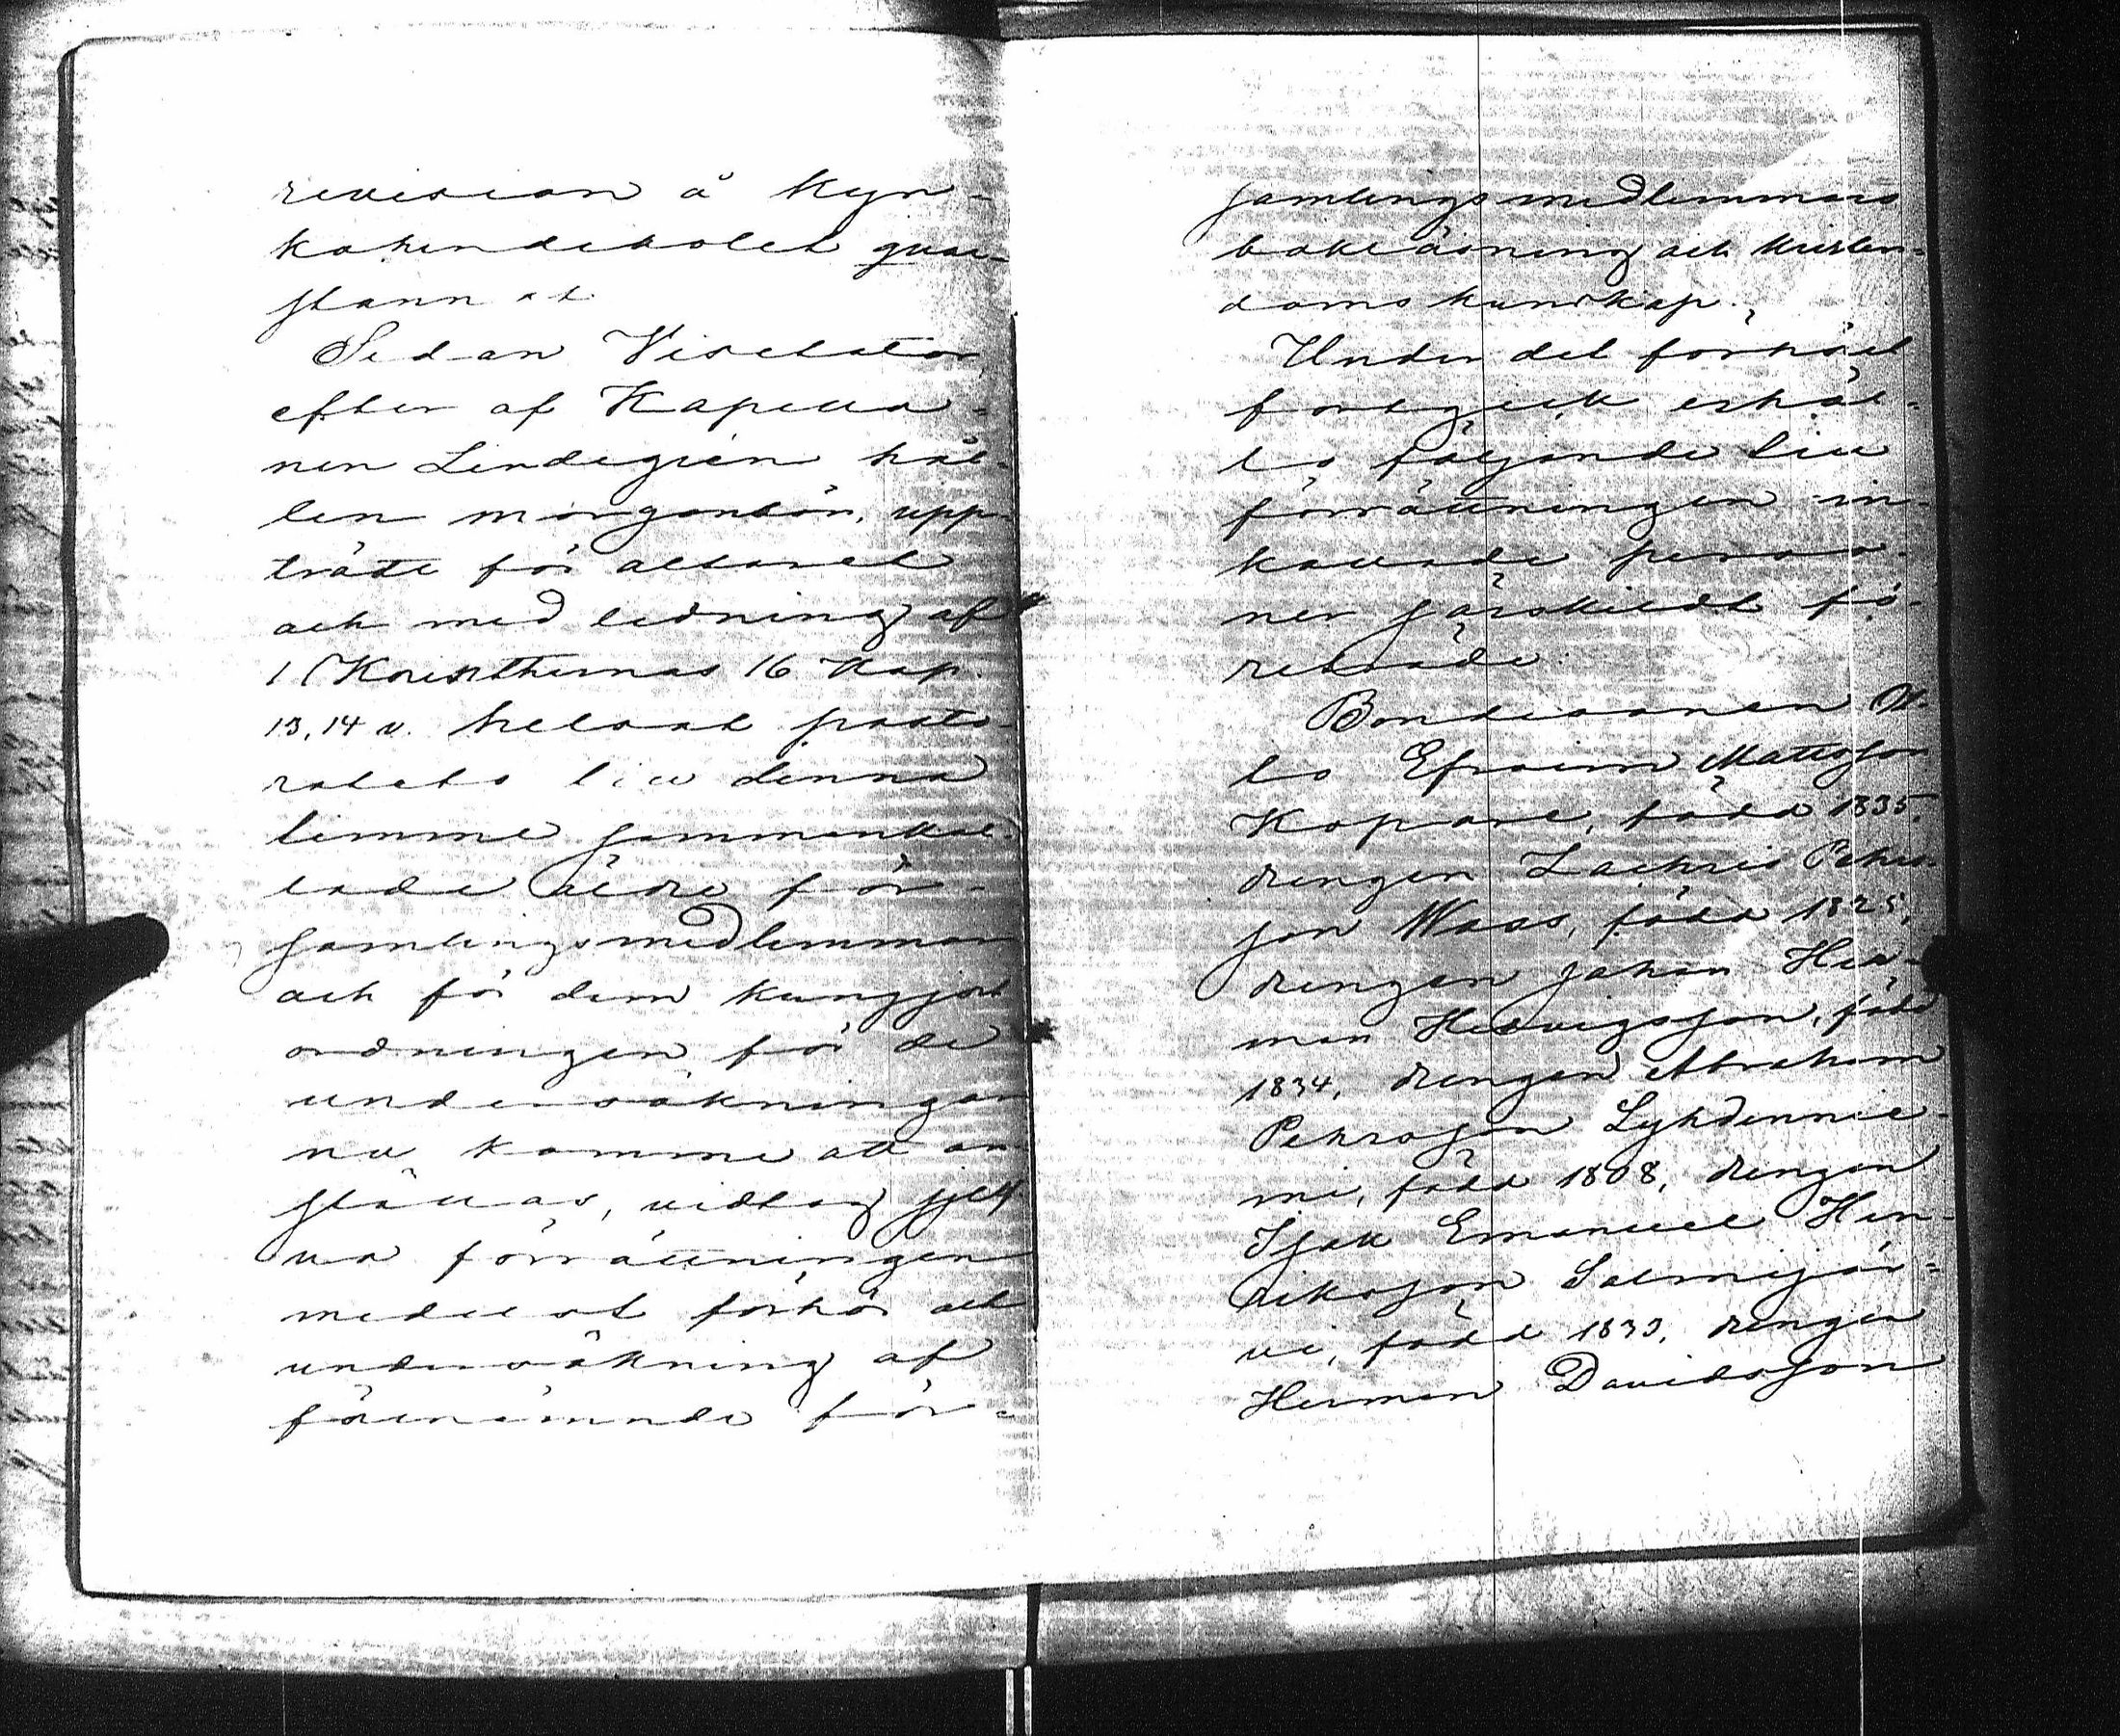 revision å Kyr-
koherdebolet qvar-
stannat
Sedan Visitator,
efter af Kapella-
nen Lindegrén hål-
len morgonbön, upp-
trädt för altaret
och med ledning af
1 Korinthernas 16 Kap.
13, 14 v. helsat pasto-
ratets till denna
timme sammankal-
lade äldre för-
samlingsmedlemmar
och för dem kungjort
ordningen för de
undersökningar
nu komme att an-
ställas, vidtog sjelf-
va förrättningen
medelst förhör och
undersökning af
förenämnde för-
samlingsmedlemmars
bokläsning och kristen-
domskunskap.
Under det förhöret
fortgick erhöl-
ls följande till
förrättningen in-
kallade perso-
ner särskildt fö-
reträde:
Bondesonen U-
ls Efraim Mattsson
Kopare, född 1835,
drengen Zachris Pehrs-
son Wass, född 1825,
drengen Johan Her-
man Hedvigsson, född
1834, drengen Abraham
Pehrsson Lyhdennie-
mi, född 1808, drengen
Isak Emanuel Hen-
riksson Salmijär-
vi, född 1833, drengen
Herman Davidsson